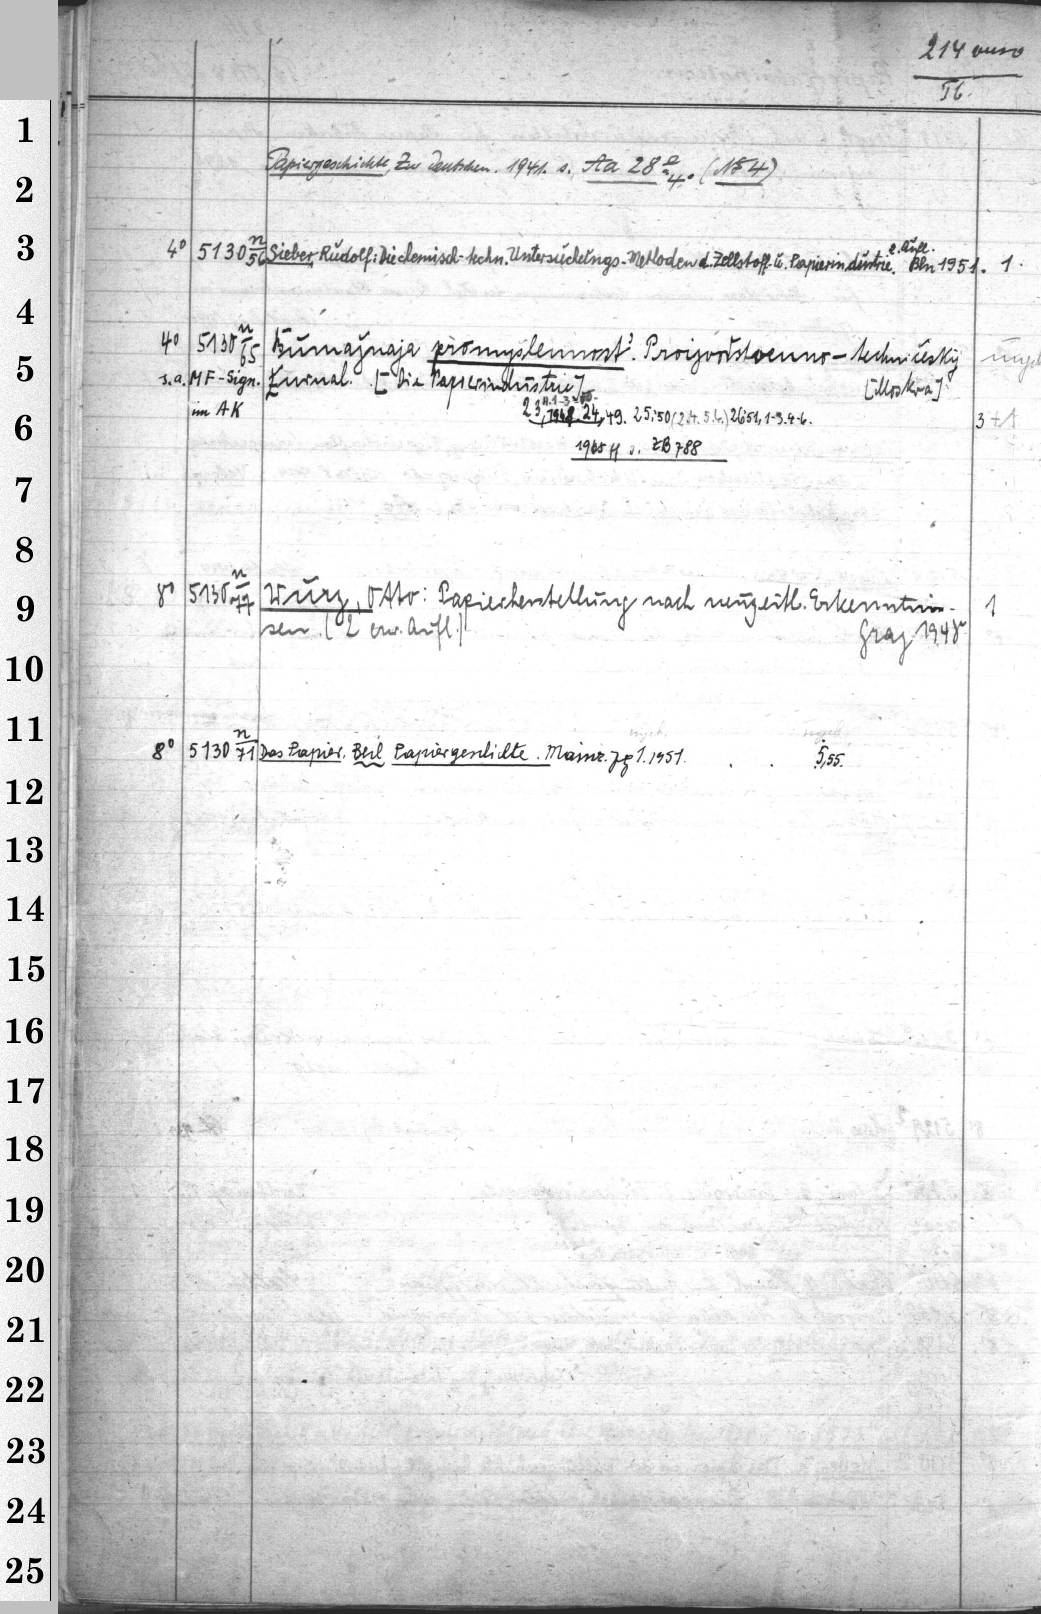 214
1
2
Papiergeschichte, Zur deutschen. 1941. s. Aa 28 4° (№ 4)
3
4° 5130 n/56 Sieber, Rudolf: Die chemisch-techn. Untersuchungs-Methoden d. Zellstoff- u. Papierindustrie. 2. Aufl. Bln 1951. 1.
4
4° 5130 n/65 Bumažnaja promyšlennost'. Proizvodstvenno-techničeskij
5
s.a. MF-Sign. Žurnal. [Die Papierindustrie] [Moskva]
im AK
6
23, 1948. 24, 49. 25, 50 (2.4.5.6.) 26, 51, 1-3.4-6. 3 + 1
s. ZB 788
7
8
9
8° 5130 n/77 Wurz, Otto: Papierherstellung nach neuzeitl. Erkenntnis- 1
sen. (2. erw. Aufl.) Graz 1948
10
11
8° 5130 n/71 Das Papier. Beil. Papiergeschichte. Mainz. Jg 1. 1951. 5,55.
12
13
14
15
16
17
18
19
20
21
22
23
24
25